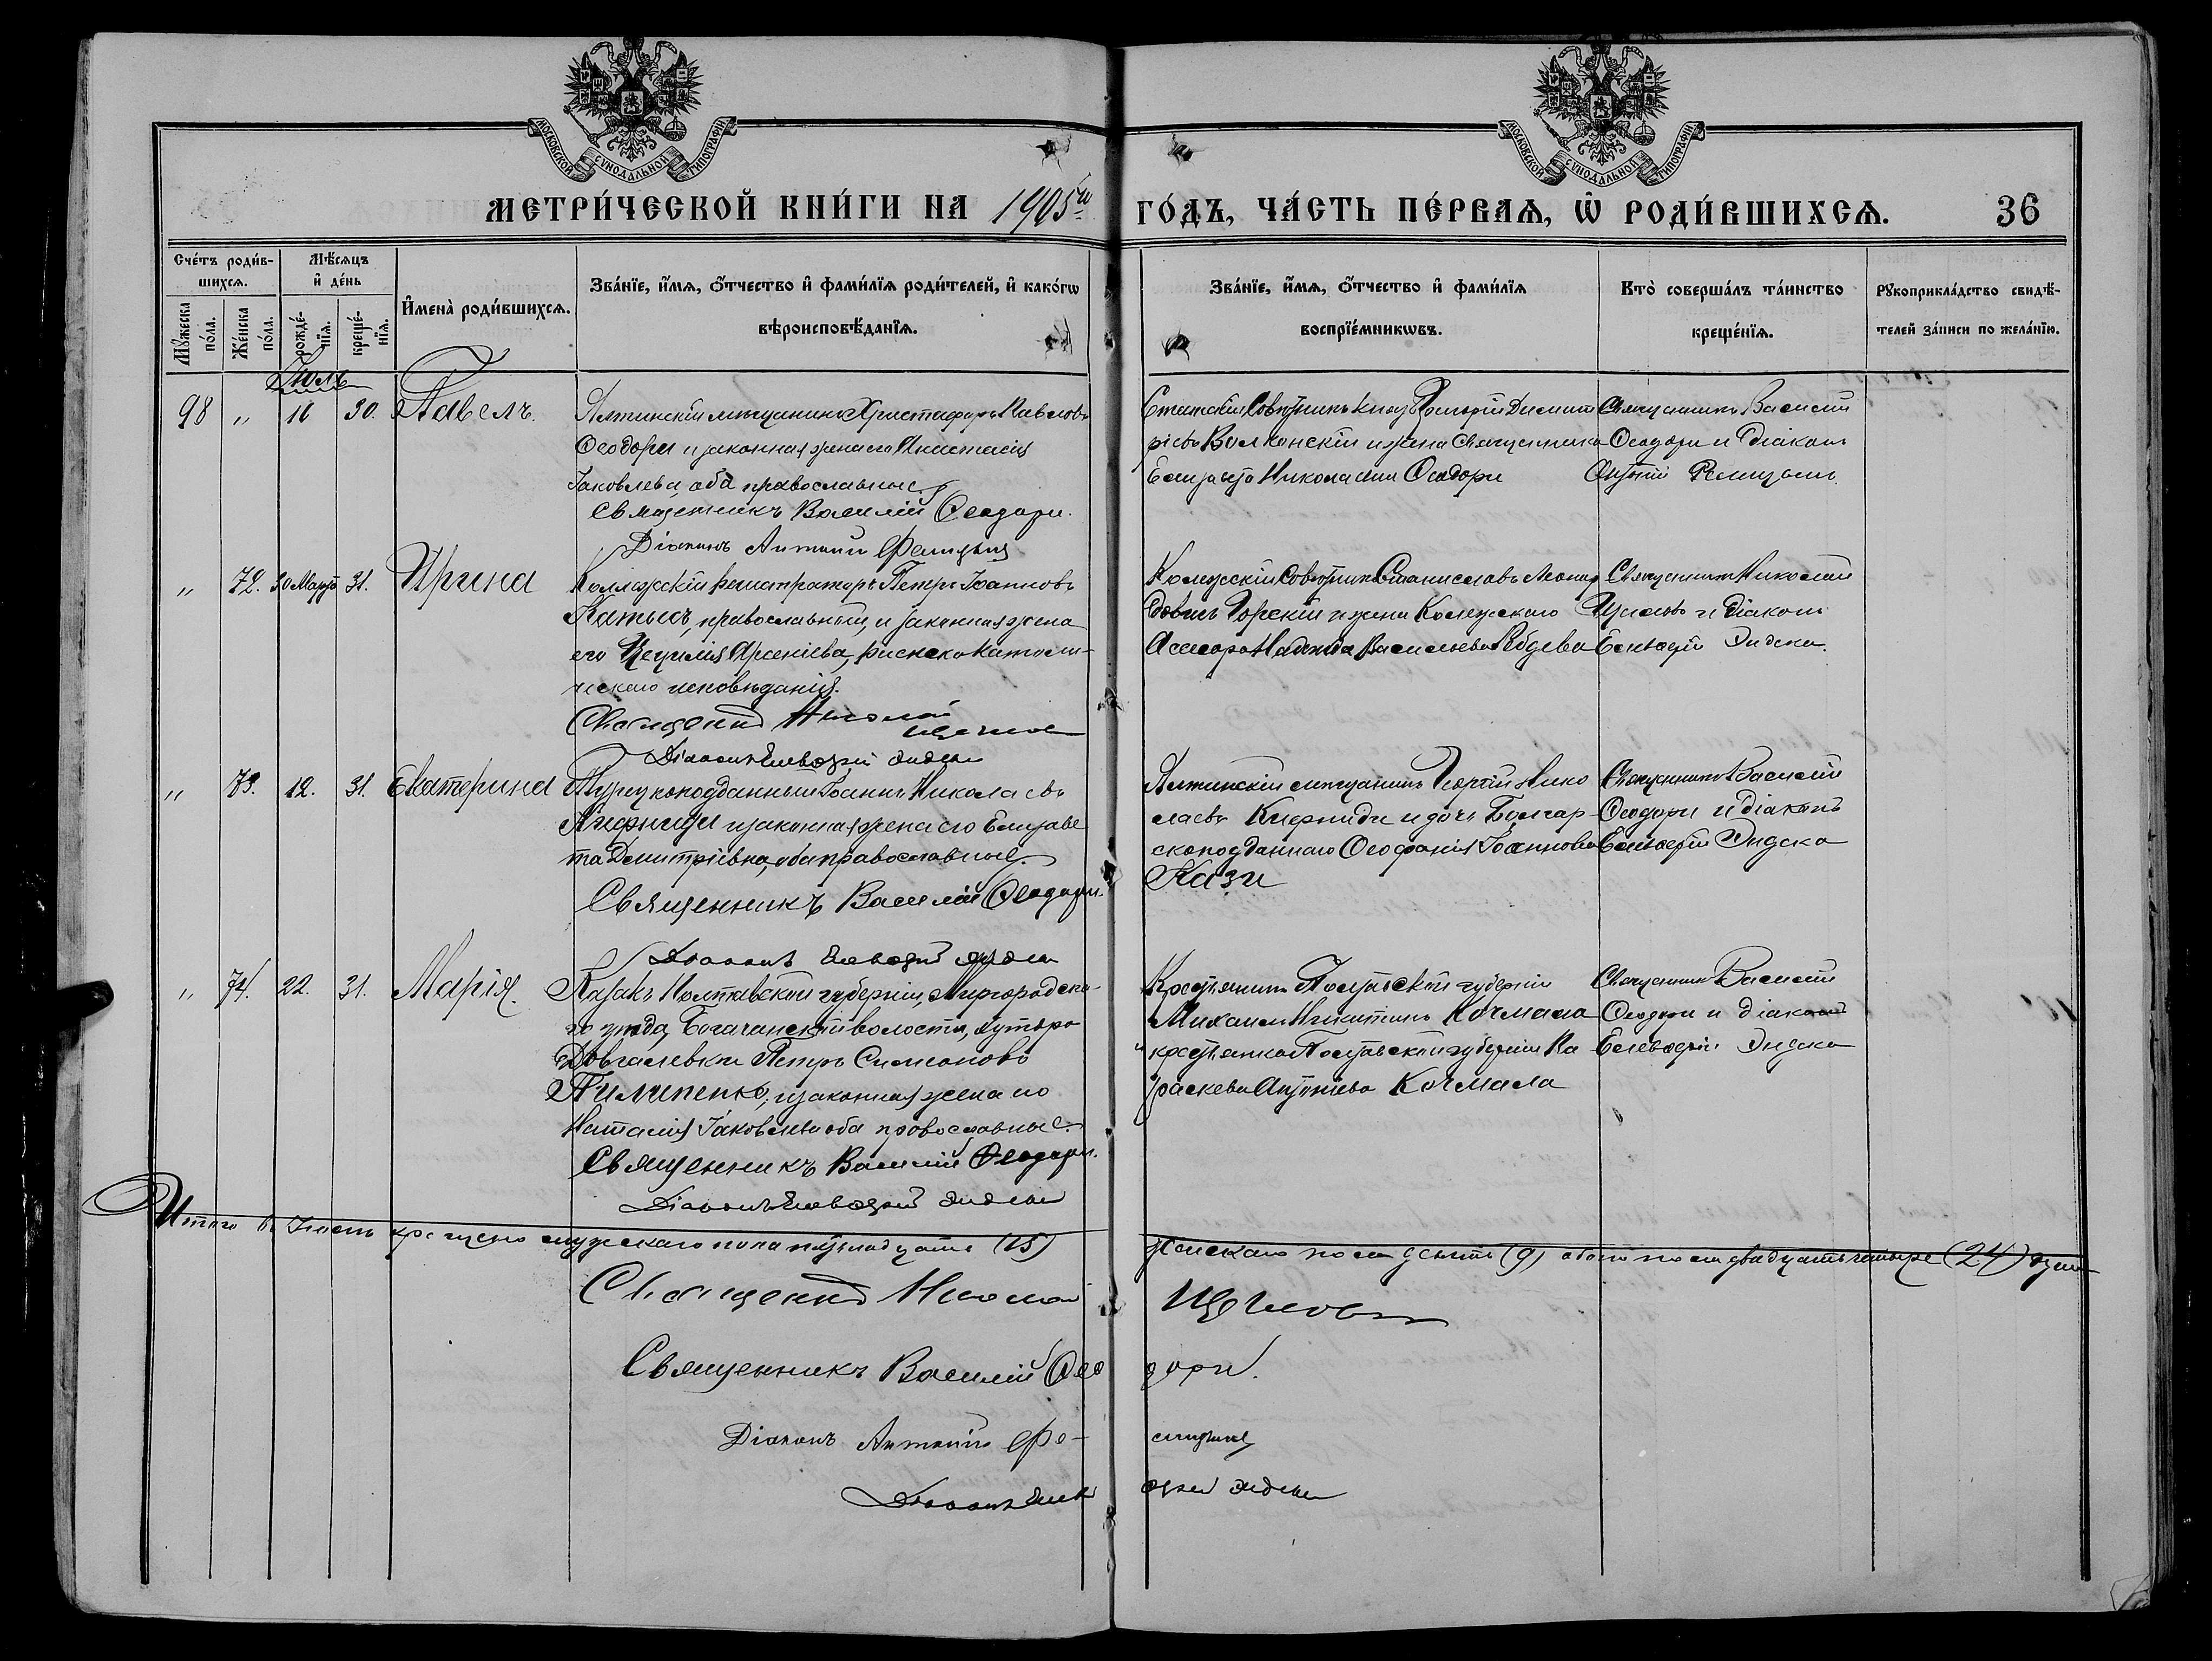 МОСКОВСКОЙ СѴНОДАЛЬНОЙ ТИПОГРАФІИ
МОСКОВСКОЙ СѴНОДАЛЬНОЙ ТИПОГРАФІИ
МЕТРИ́ЧЕСКОЙ КНИ́ГИ НА 1905й ГО́ДЪ, ЧА́СТЬ ПЕ́РВАѦ, Ѡ РОДИ́ВШИХСѦ. 36
Сче́тъ роди́в-
шихсѧ.
Мꙋ́жеска по́ла.
Же́нска по́ла.
Мѣ́сѧцъ
и҆ де́нь
рожде́-нїѧ.
креще́-нїѧ.
И҆мена̀ роди́вшихсѧ.
Зва́нїе, и҆́мѧ, ѻ҆́тчество и҆ фами́лїѧ роди́телей, и҆ како́гѡ
вѣроисповѣ́данїѧ.
Зва́нїе, и҆́мѧ, ѻ҆́тчество и҆ фами́лїѧ
воспрїе́мникѡвъ.
Кто̀ соверша́лъ та́инство
креще́нїѧ.
Рꙋкоприкла́дство свидѣ́-
телей за́писи по жела́нїю.
Іюль
98 " 16 30. Павелъ.
Ялтинскій мѣщанинъ Христофоръ Павловъ
Ѳеодори и законная жена его Анастасія
Іаковлева, оба православные.
Священникъ Василій Ѳеодори.
Діаконъ Антоній
Статскій Совѣтникъ Князь Григорій Димит
ріевъ Волконскій и жена Священника
Елизавета Николаевна Ѳеодори
Священникъ Василій
Ѳеодори и Діаконъ
Антоній
" 72. 30 Марта 31. Ирина
Коллежскій Регистраторъ Петръ Іоанновъ
православный, и законная жена
его Цецилія Арсеніева, Римско Католи-
ческаго исповѣданія.
Священникъ Николай
Щегловъ
Діаконъ
Коллежскій Совѣтникъ Станиславъ Леони
довичъ Горскій и жена Коллежскаго
Асесора Надежда Васильева
Священникъ Николай
Щегловъ и діаконъ
" 73. 12. 31. Екатерина
Турецкоподданный Іоаннъ Николаевъ
и законная жена его Елизаве
та Димитріевна, оба православные.
Священникъ Василій Ѳеодори.
Діаконъ
Ялтинскій мѣщанинъ Георгій Нико
лаевъ и дочь Болгар-
скоподданнаго Ѳеофанія Іоаннова
Кази
Священникъ Василій
Ѳеодори и діаконъ
" 74. 22. 31. Марія.
Казакъ Полтавской губерніи, Миргородска-
го уѣзда, Богачанской волости, хутора
Довгалевки Петръ Симеоновъ
Пилипенко, и законная жена его
Наталія Іаковлева оба православные.
Священникъ Василій Ѳеодори.
Діаконъ
Крестьянинъ Полтавской губерніи
Михаилъ Никитинъ Кочмала
и крестьянка Полтавской губерніи Па
раскева Антоніева Кочмала
Священникъ Василій
Ѳеодори и діаконъ
Итого въ Іюлѣ крещено мужскаго пола пятьнадцать (15) женскаго пола девять (9) обоего пола двадцать четыре (24) душ
Священникъ Николай Щегловъ
Священникъ Василій Ѳеодори.
Діаконъ Антоній
Діаконъ